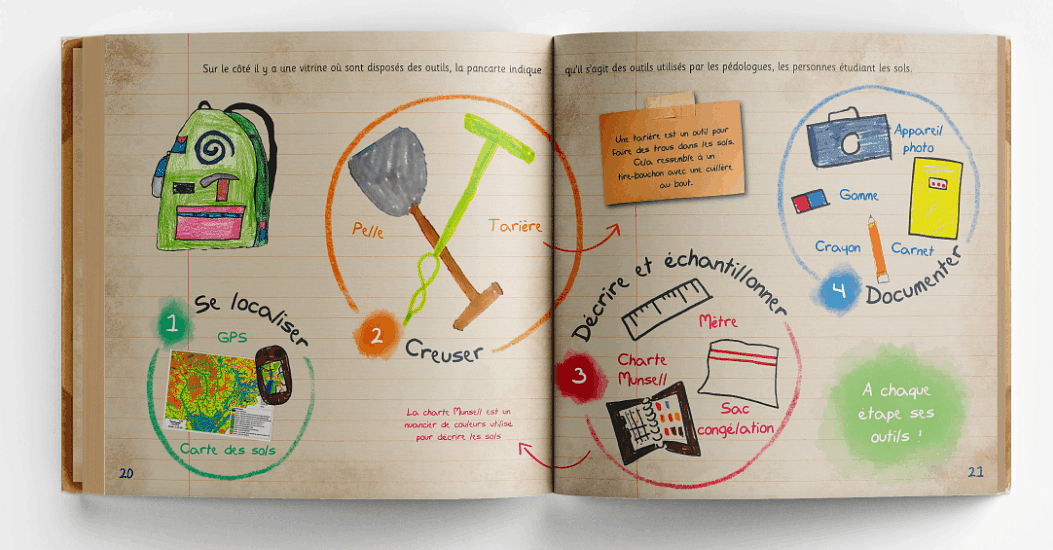 Sur le côté il y a une vitrine où sont disposés des outils, la pancarte indique qu'il s'agit des outils utilisés par les pédologues, les personnes étudiant les sols.
1
Se localiser
GPS
Carte des sols
2
Creuser
Pelle
Tarière
Une tarière est un outil pour
faire des trous dans les sols.
Cela ressemble à un
tire-bouchon avec une cuillère
au bout.
3
Décrire et échantillonner
Mètre
Charte
Munsell
Sac
congélation
La charte Munsell est un
nuancier de couleurs utilisé
pour décrire les sols
4
Documenter
Appareil
photo
Gomme
Crayon
Carnet
A chaque
étape ses
outils !
20
21